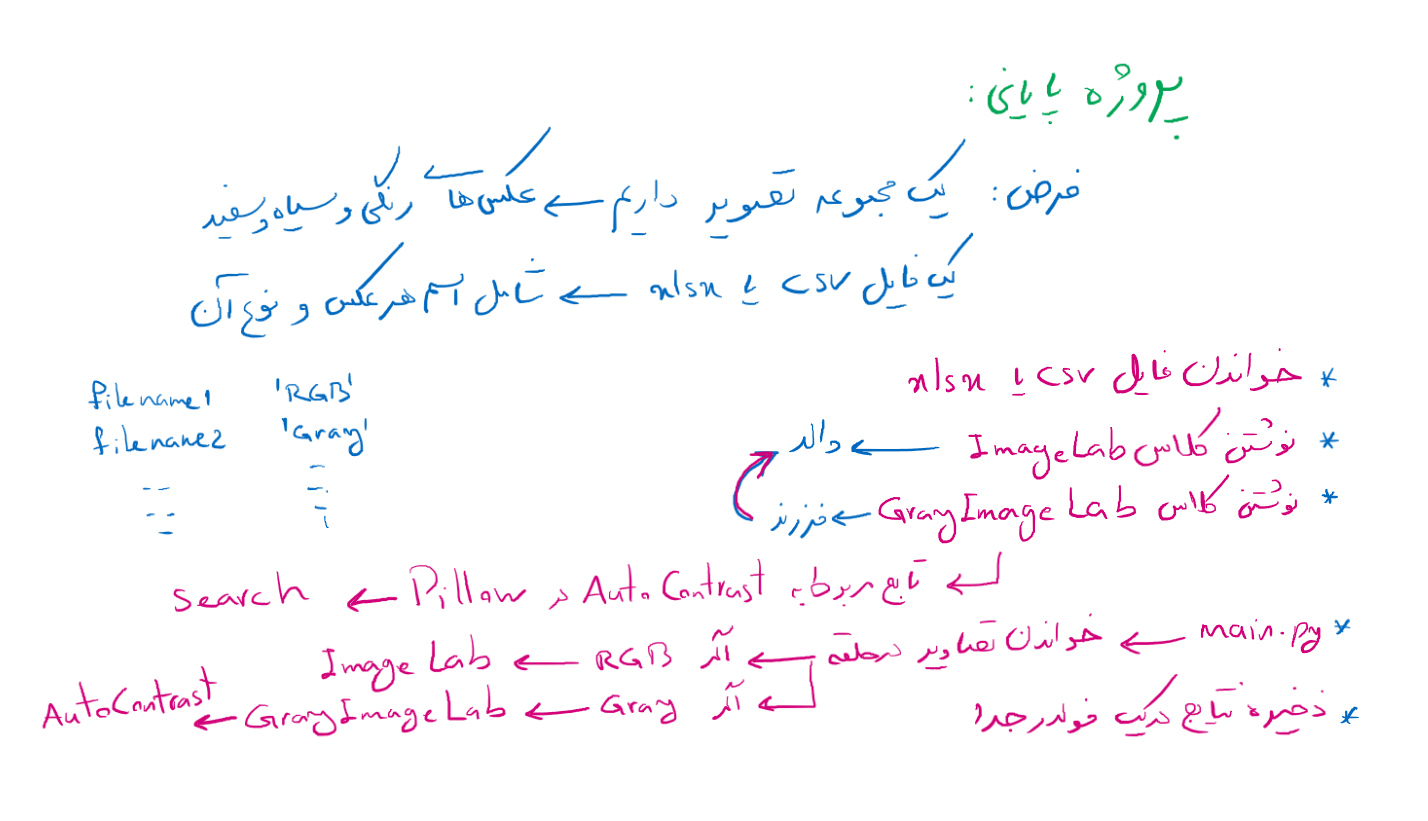 پروژه پایانی:
فرض: یک مجموعه تصویر داریم ← عکس‌ها ← رنگی و سیاه و سفید
یک فایل csv یا xlsx ← شامل اسم هر عکس و نوع آن
* خواندن فایل csv یا xlsx
filename1 'RGB'
* نوشتن کلاس ImageLab ← والد
filename2 'Gray'
* نوشتن کلاس GrayImageLab ← فرزند
← تابع مربوط به AutoContrast در Pillow ← search
* main.py ← خواندن تصاویر در حلقه ← اگر RGB ← ImageLab
← اگر Gray ← GrayImageLab ← AutoContrast
* ذخیره نتایج در یک فولدر جدا